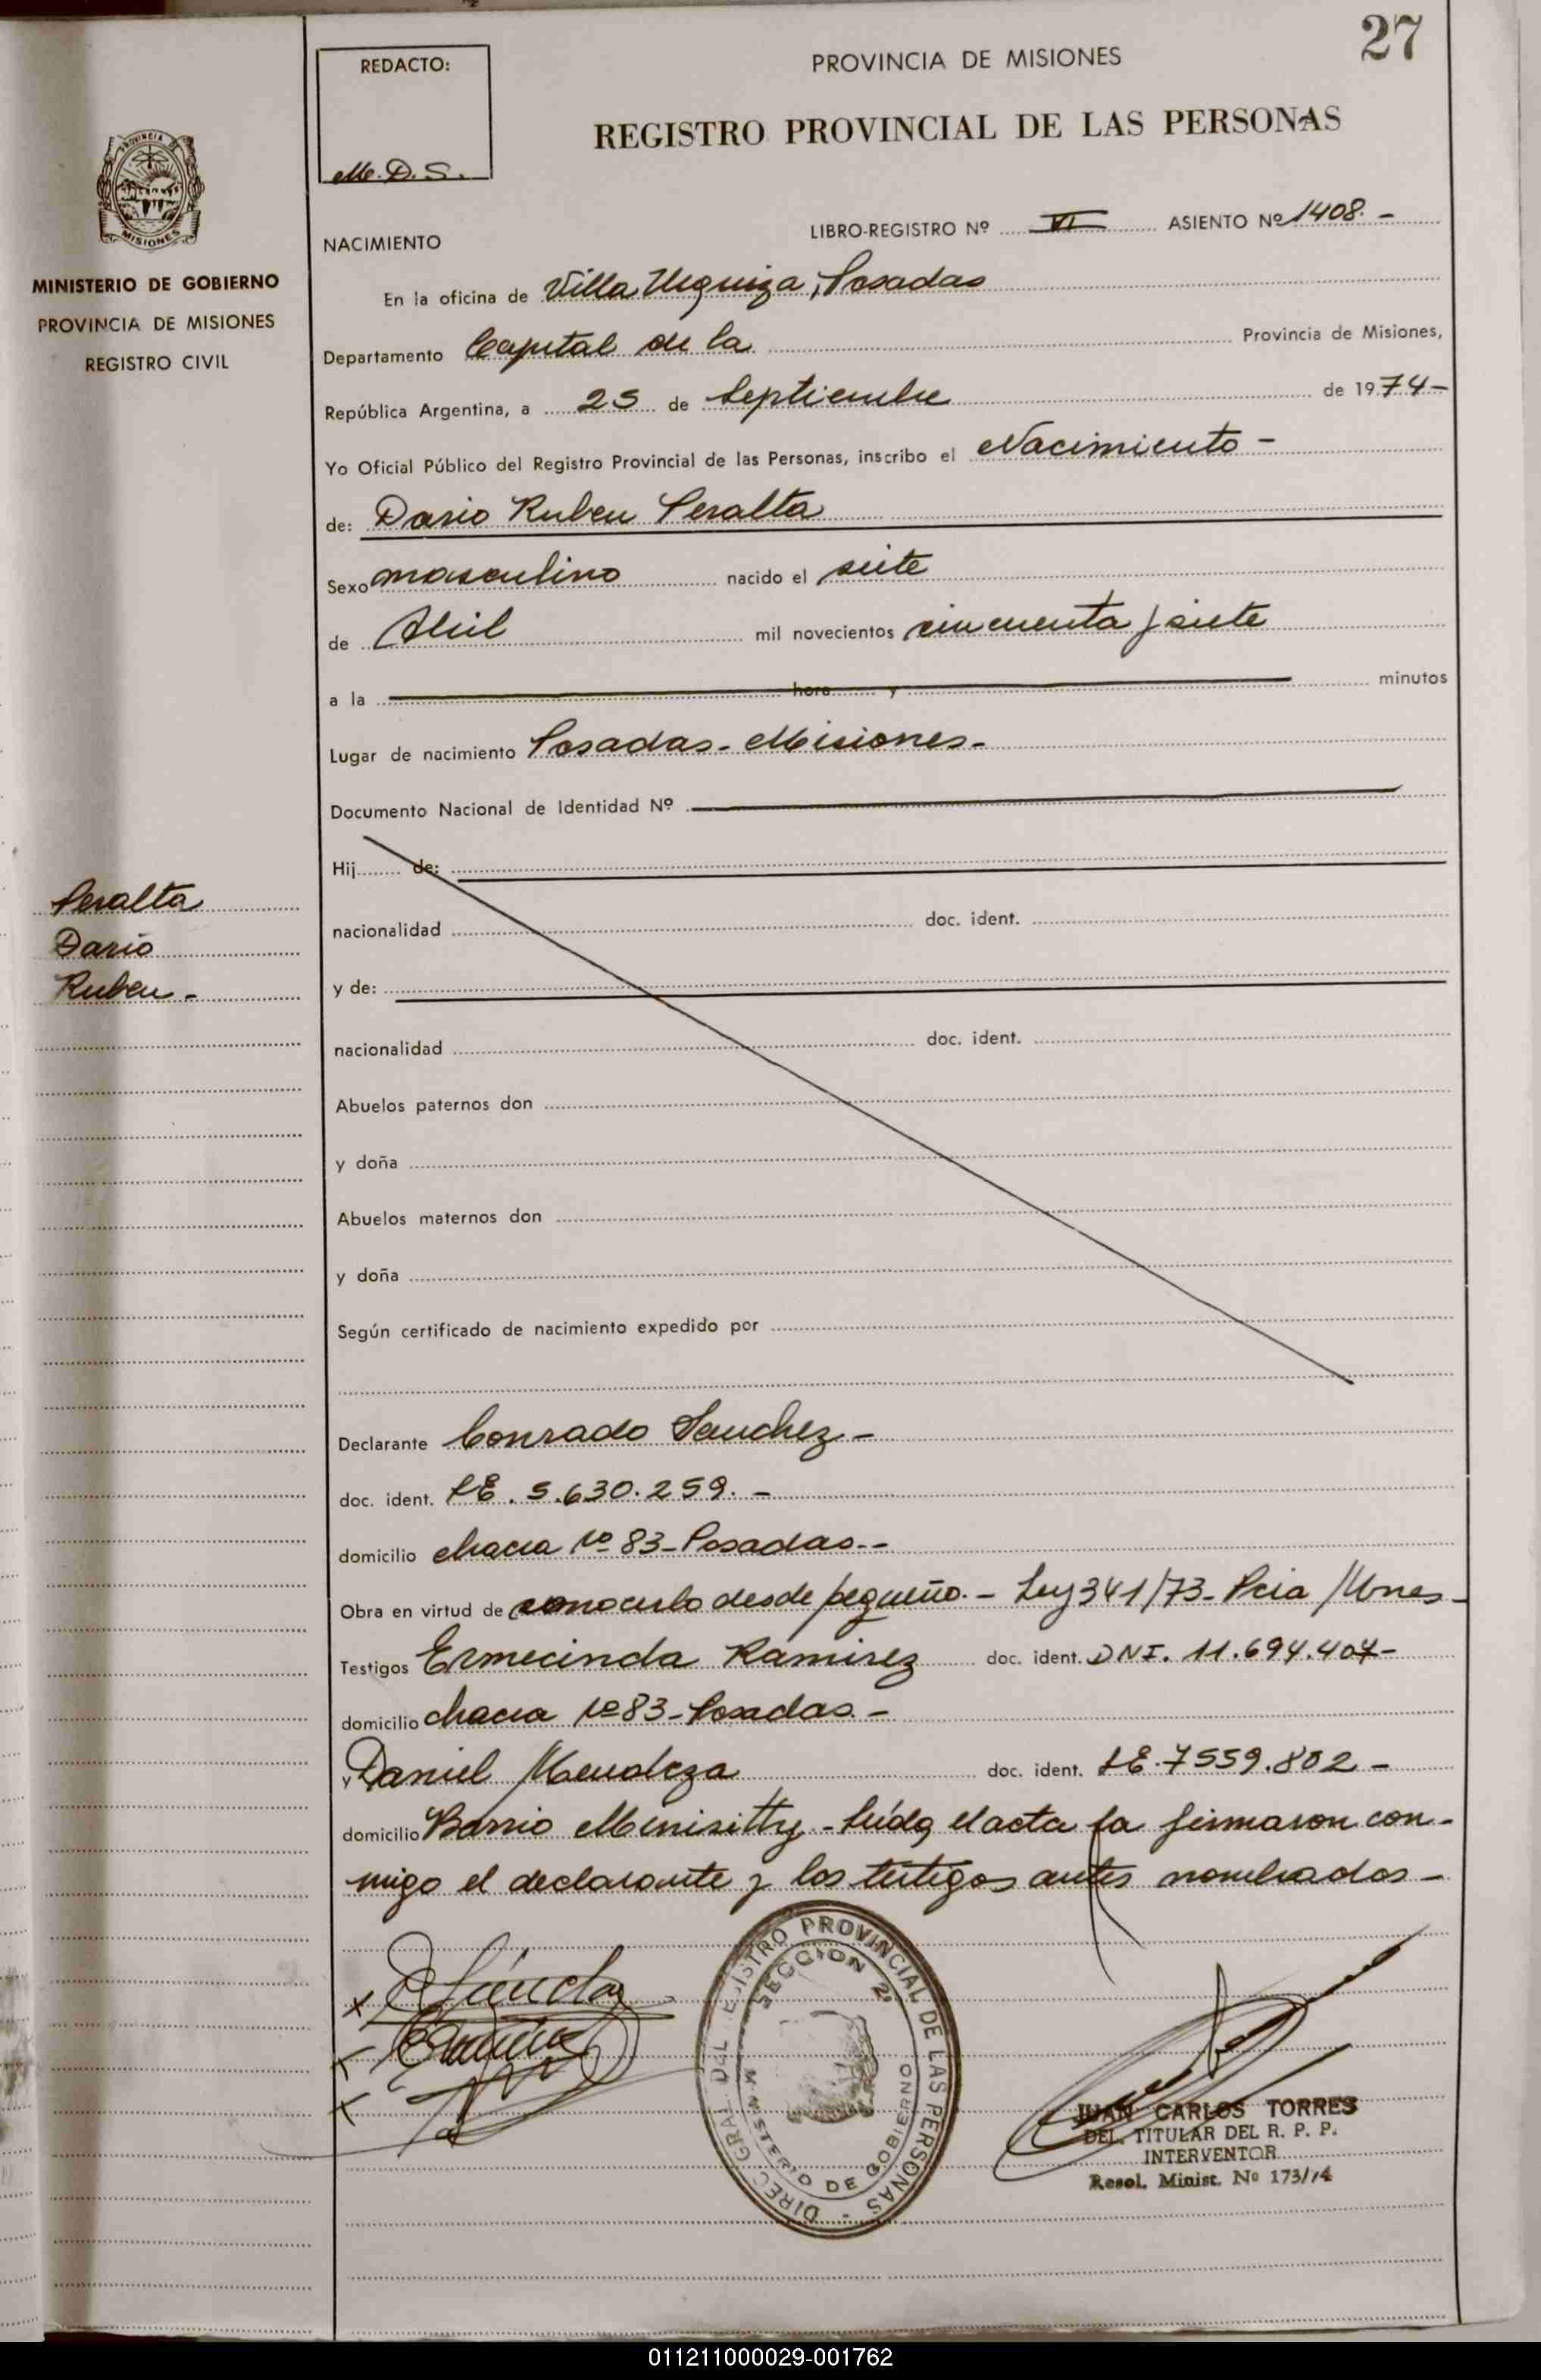 27
REDACTO:
M. D. S.
PROVINCIA DE MISIONES
REGISTRO PROVINCIAL DE LAS PERSONAS
PROVINCIA
MISIONES
MINISTERIO DE GOBIERNO
PROVINCIA DE MISIONES
REGISTRO CIVIL
NACIMIENTO
LIBRO-REGISTRO Nº VI ASIENTO Nº 1408.-
En la oficina de Villa Urquiza, Posadas
Departamento Capital de la Provincia de Misiones,
República Argentina, a 25 de Septiembre de 1974-
Yo Oficial Público del Registro Provincial de las Personas, inscribo el Nacimiento -
de: Dario Ruben Peralta
Sexo masculino nacido el siete
de Abril mil novecientos cincuenta y siete
a la hora y minutos
Lugar de nacimiento Posadas - Misiones -
Documento Nacional de Identidad Nº
Hij de:
nacionalidad doc. ident.
y de:
nacionalidad doc. ident.
Peralta
Dario
Ruben -
Abuelos paternos don
y doña
Abuelos maternos don
y doña
Según certificado de nacimiento expedido por
Declarante Conrado Sanchez -
doc. ident. LE. 5.630.259. -
domicilio chacra Nº 83 - Posadas. -
Obra en virtud de conocerlo desde pequeño. - Ley 341/73 - Pcia / Mnes -
Testigos Ermecinda Ramirez doc. ident. DNI. 11.694.407 -
domicilio chacra Nº 83 - Posadas. -
y Daniel Mendoza doc. ident. LE. 7559.802 -
domicilio Barrio - Leída el acta la firmaron con-
migo el declarante y los testigos antes nombrados -
DIREC. GRAL. DEL REGISTRO PROVINCIAL DE LAS PERSONAS -
SECCION 2ª
MINISTERIO DE GOBIERNO
JUAN CARLOS TORRES
DEL. TITULAR DEL R. P. P.
INTERVENTOR
Resol. Minist. Nº 173/74
011211000029-001762